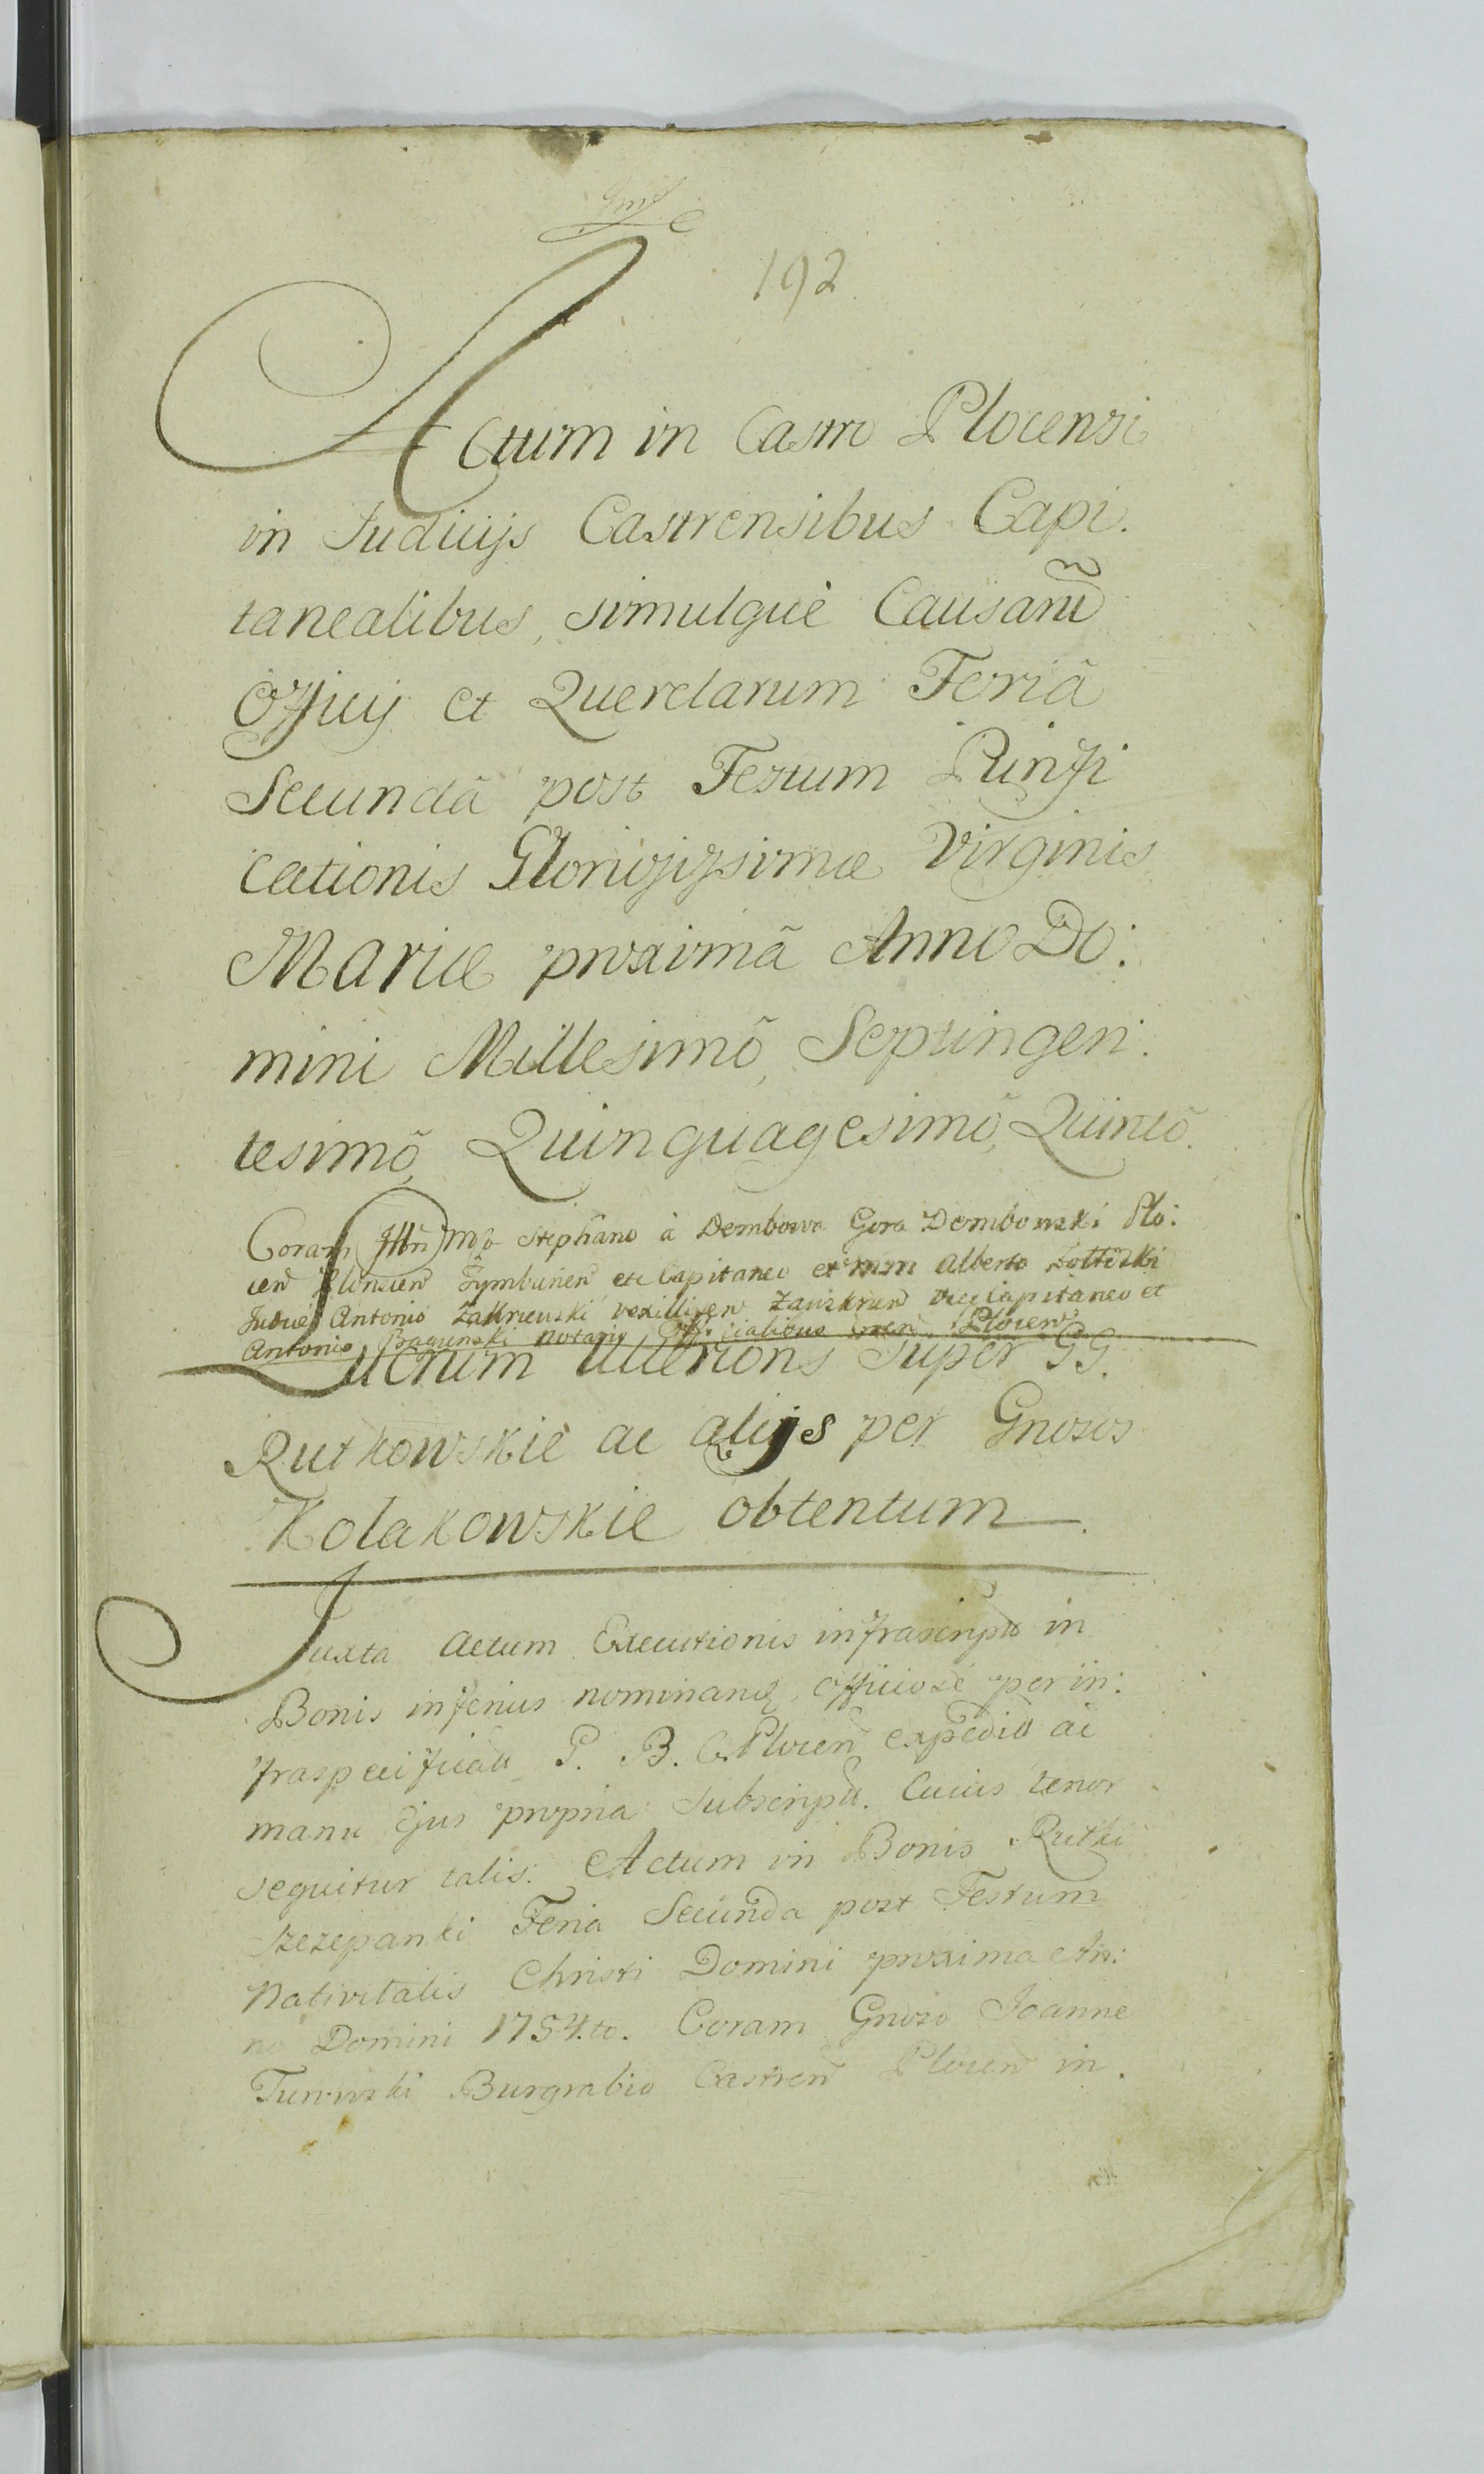 192
Actum in Castro Plocensi
in Judicijs Castrensibus Capi.
tanealibus, simulquè Causarũ
Officij et Querelarum Feriã
Secundã post Festum Purifi
cationis Gloriosissimæ Virginis
Mariæ proximã Anno Do:
mini Millesimõ, Septingen:
tesimõ, Quinquagesimõ, Quintõ.
Coram Illri Mgo Stephano à Dembowa Gora Dembowski Plo:
cen Plonscen Tymbarien etc Capitaneo et mm Alberto Zołtowski
Judice Antonio Zakrzewski vexillifen Zawskrzen vice Capitaneo et
Antonio notario Officialibus Plocen
Lucrum Ulterioris super GG.
Rutkowskie ac alijs per Gnosos
Kolakowskie obtentum
Juxta Actum Executionis infrascript in
Bonis inferius nominand, officiosè per in:
fraspecificatu G. B. C. Plocen expeditt ac
manu Ejus propria subscriptt. Cuius tenor
sequitur talis: Actum in Bonis Rutki
Szczepanki Feria Secunda post Festum
Nativitatis Christi Domini proxima An:
no Domini 1754.to. Coram Gnoso Joanne
Turowski Burgrabio Castren Plocen in.